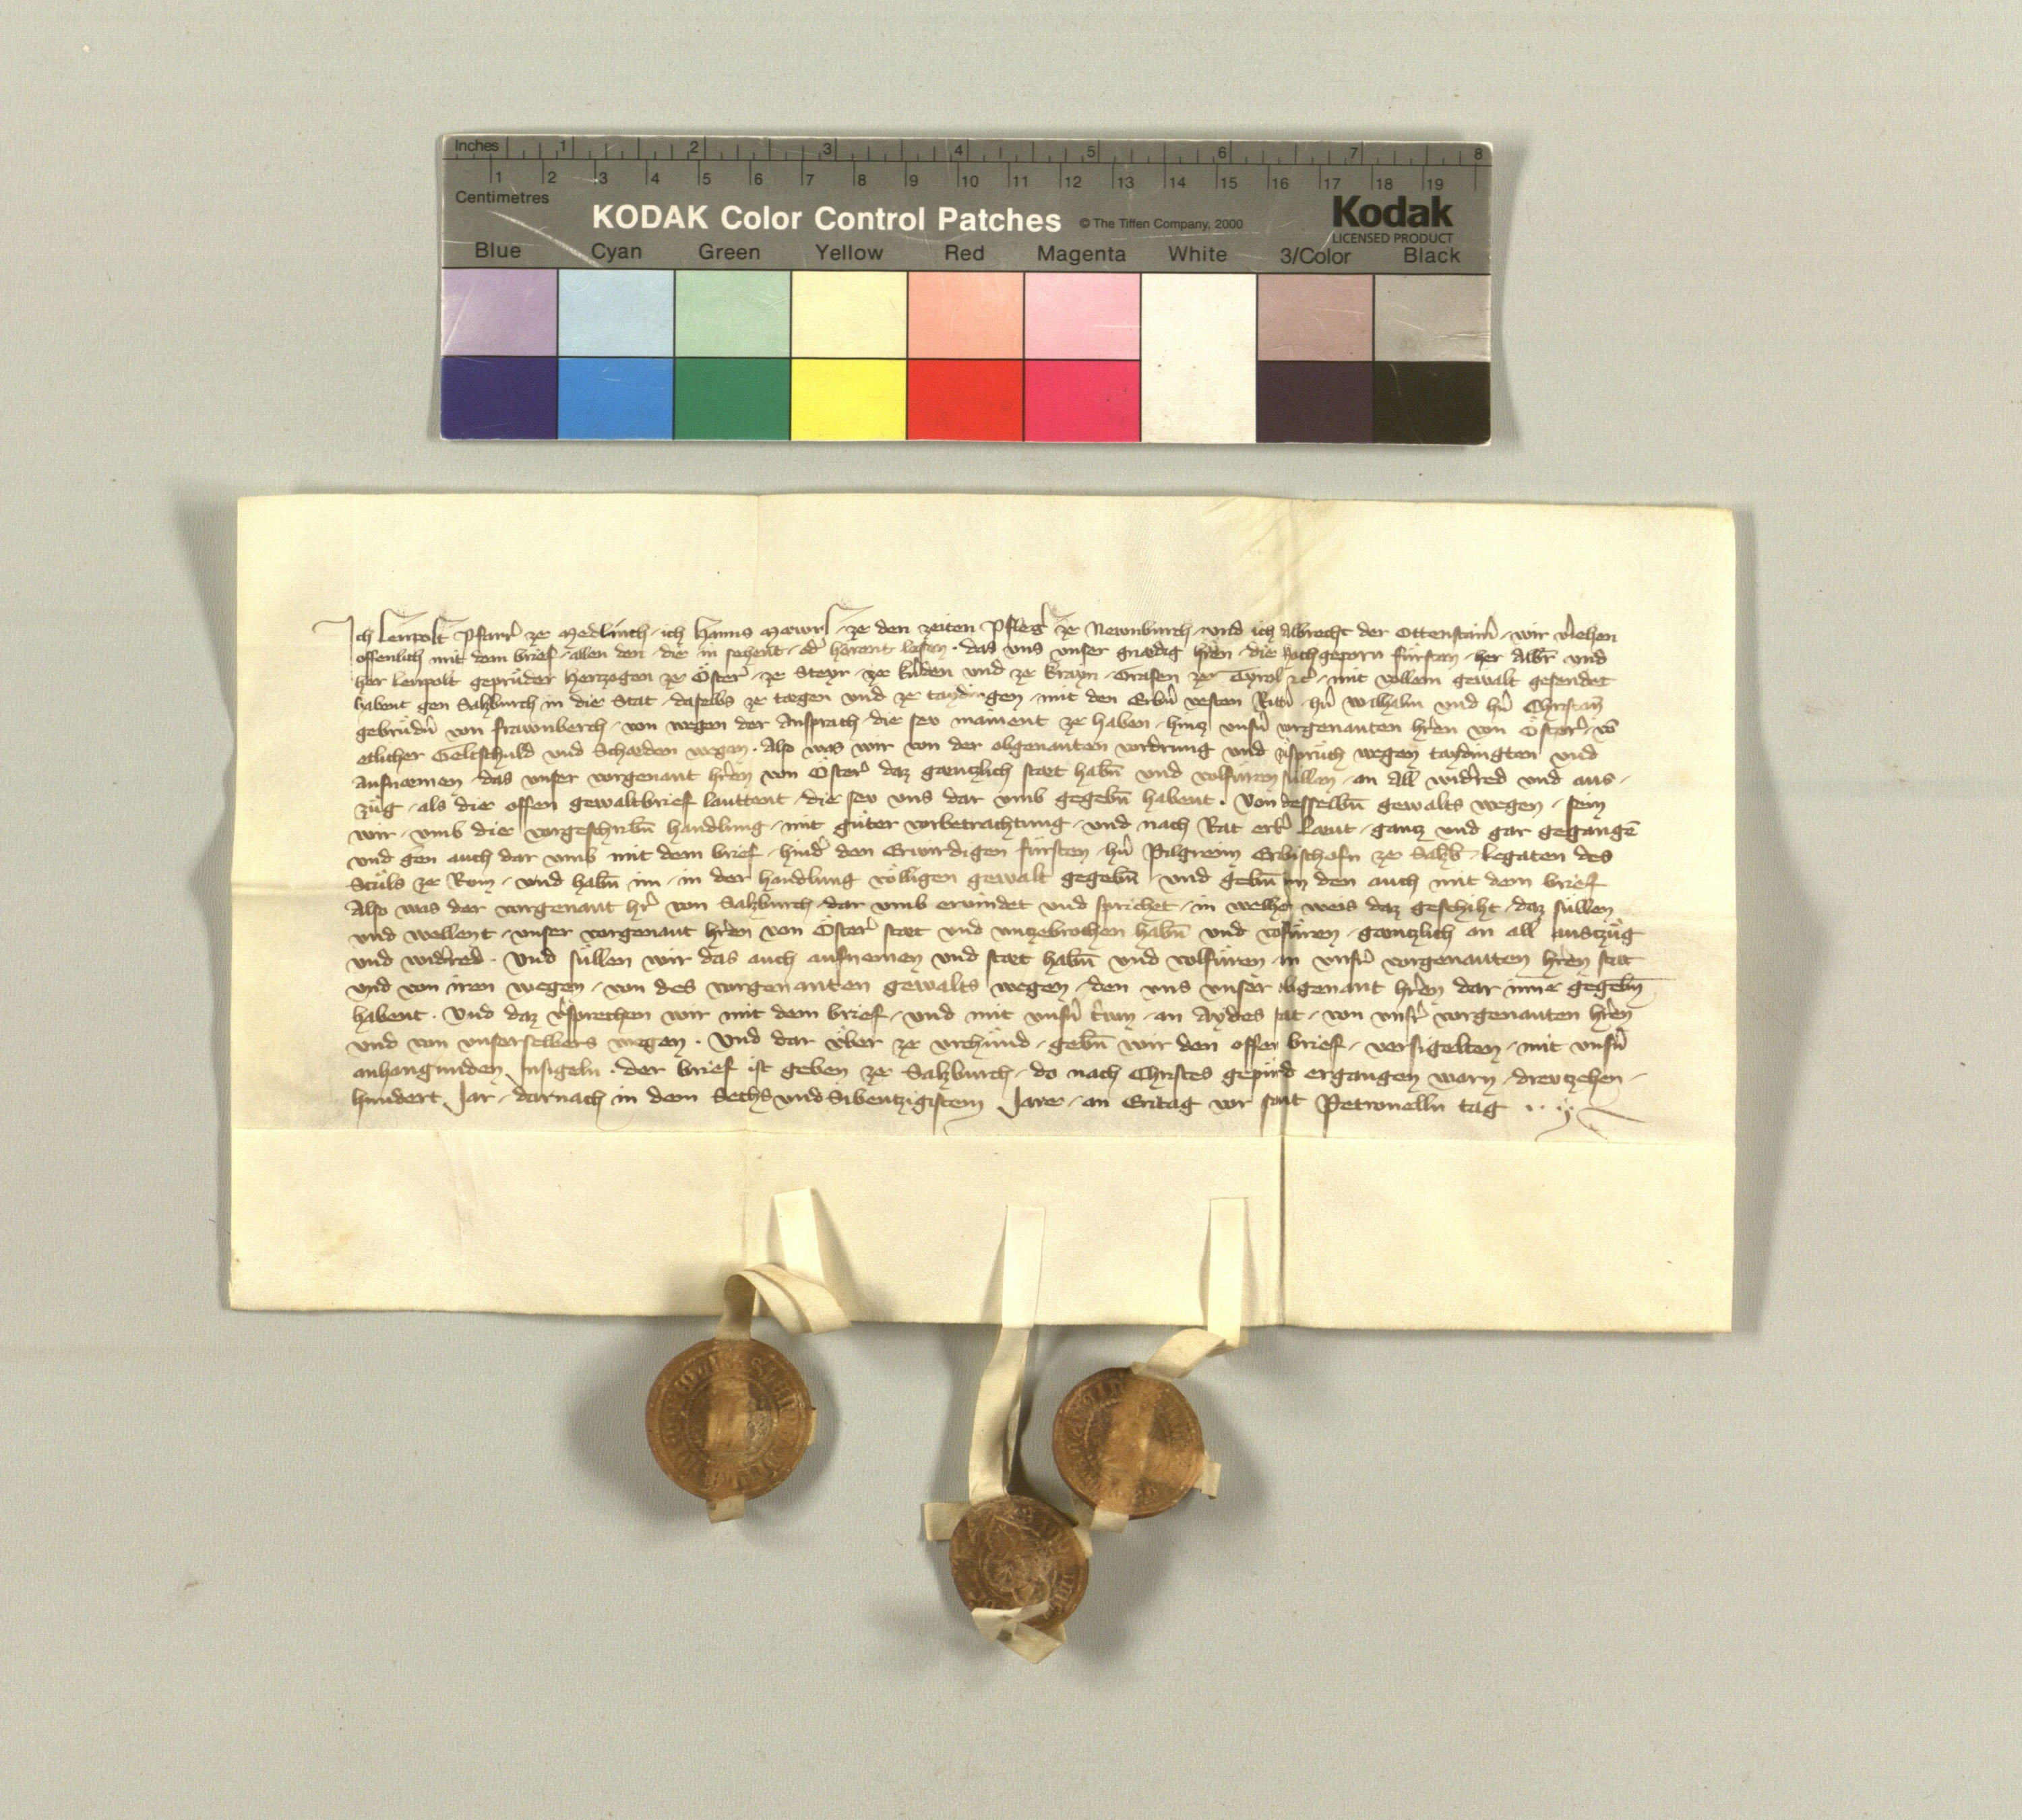 Inches 1 2 3 4 5 6 7 8
1 2 3 4 5 6 7 8 9 10 11 12 13 14 15 16 17 18 19
Centimetres
KODAK Color Control Patches © The Tiffen Company, 2000 Kodak
LICENSED PRODUCT
Blue Cyan Green Yellow Red Magenta White 3/Color Black
Ich Leupolt Pfarr̄ ze Medlikch / ich Hanns / ze den zeiten Pfleg̛ ze Newnburch / vnd ich Albrecht der Ottenstain̄ / wir v̛iehen
offenlich mit dem brief / allen den / die in sehent / od̛ hoͤrent lesen · das vns vnser gnædig hr̄en / die hochgeporn fuͤrsten / her Albr̄ vnd
her Leupolt geprüder Hertzogen ze Öster̄ / ze Steyr / ze kērden vnd ze krayn / Grafen ze Tyrol ꝛc̄ / mit vollem gewalt gesendet
habent gen Saltzburch in die Stat / daselbs ze tægen vnd ze taydingen / mit den Erb̄n vesten Ritt̄n / hn̄ Wilhalm vnd hn̄ Christan̄
gebruͤdn̄ von frawnberch / von wegen der Ansprach / die sev mainent ze haben / hintz vnsn̄ vorgenanten hr̄en von Öster̄ / vō
etlicher Geltschuld vnd Schæden wegen · Also was wir von der obgenanten vordrung vnd zuͦspruͤch wegen taydingten vnd
aufnæmen / das vnser vorgenant hr̄en von Öster̄ daz gæntzlich stæt habn̄ vnd volfuͤren suͤllen / an all wid̛red vnd aus /
zuͤg / als die offen gewaltbrief lauttent / die sev vns dar vmb gegebn̄ habent · Von desselbn̄ gewalts wegen / sein
wir / vmb die vorgeschribn̄ handlung / mit guͦter vorbetrachtung / vnd nach Rat erb̛ Læut / gantz vnd gar gegangē
vnd gen auch dar vmb mit dem brief / hind̛ den Erwirdigen fuͤrsten / hn̄ Pilgreim Ertzbischofn ze Saltzb̄ / Legaten des
Stuͤls ze Rom / vnd habn̄ im / in der handlung voͤlligen gewalt gegebn̄ / vnd gebn̄ im den auch mit dem brief
Also was der vorgenant hr̄ von Saltzburch / dar vmb ervindet vnd sprichet / in welher weis daz geschiht / daz suͤllen
vnd wellent / vnser vorgenant hr̄en von Öster̄ stæt vnd vnzebrochen habn̄ vnd volfuͤren / gæntzlich an all auszuͤg
vnd wid̛red · Vnd suͤllen wir das auch aufnemen vnd stæt habn̄ vnd volfuͤren / in vnsr̄ vorgenanten hr̄en stat
vnd von iren wegen / von des vorgenanten gewalts wegen / den vns vnser obgenant hr̄en dar inne gegebn̄
habent · Vnd daz v̛sprechen wir mit dem brief / vnd mit vnsn̄ tr̄wn / an Aydes stat / von vnsr̄ vorgenanten hr̄en
vnd von vnserselbers wegen · Vnd dar vͤber ze vrchuͤnd / gebn̄ wir den offen brief / versigelten / mit vnsn̄
anhangunden Insigeln · der brief ist geben ze Saltzburch / do nach Christes gepuͤrd ergangen warn / drevtzehen /
hundert Jar / darnach in dem Sechs vnd Sibentzigistem Jare / an Eritag vor sant Petronelln tag